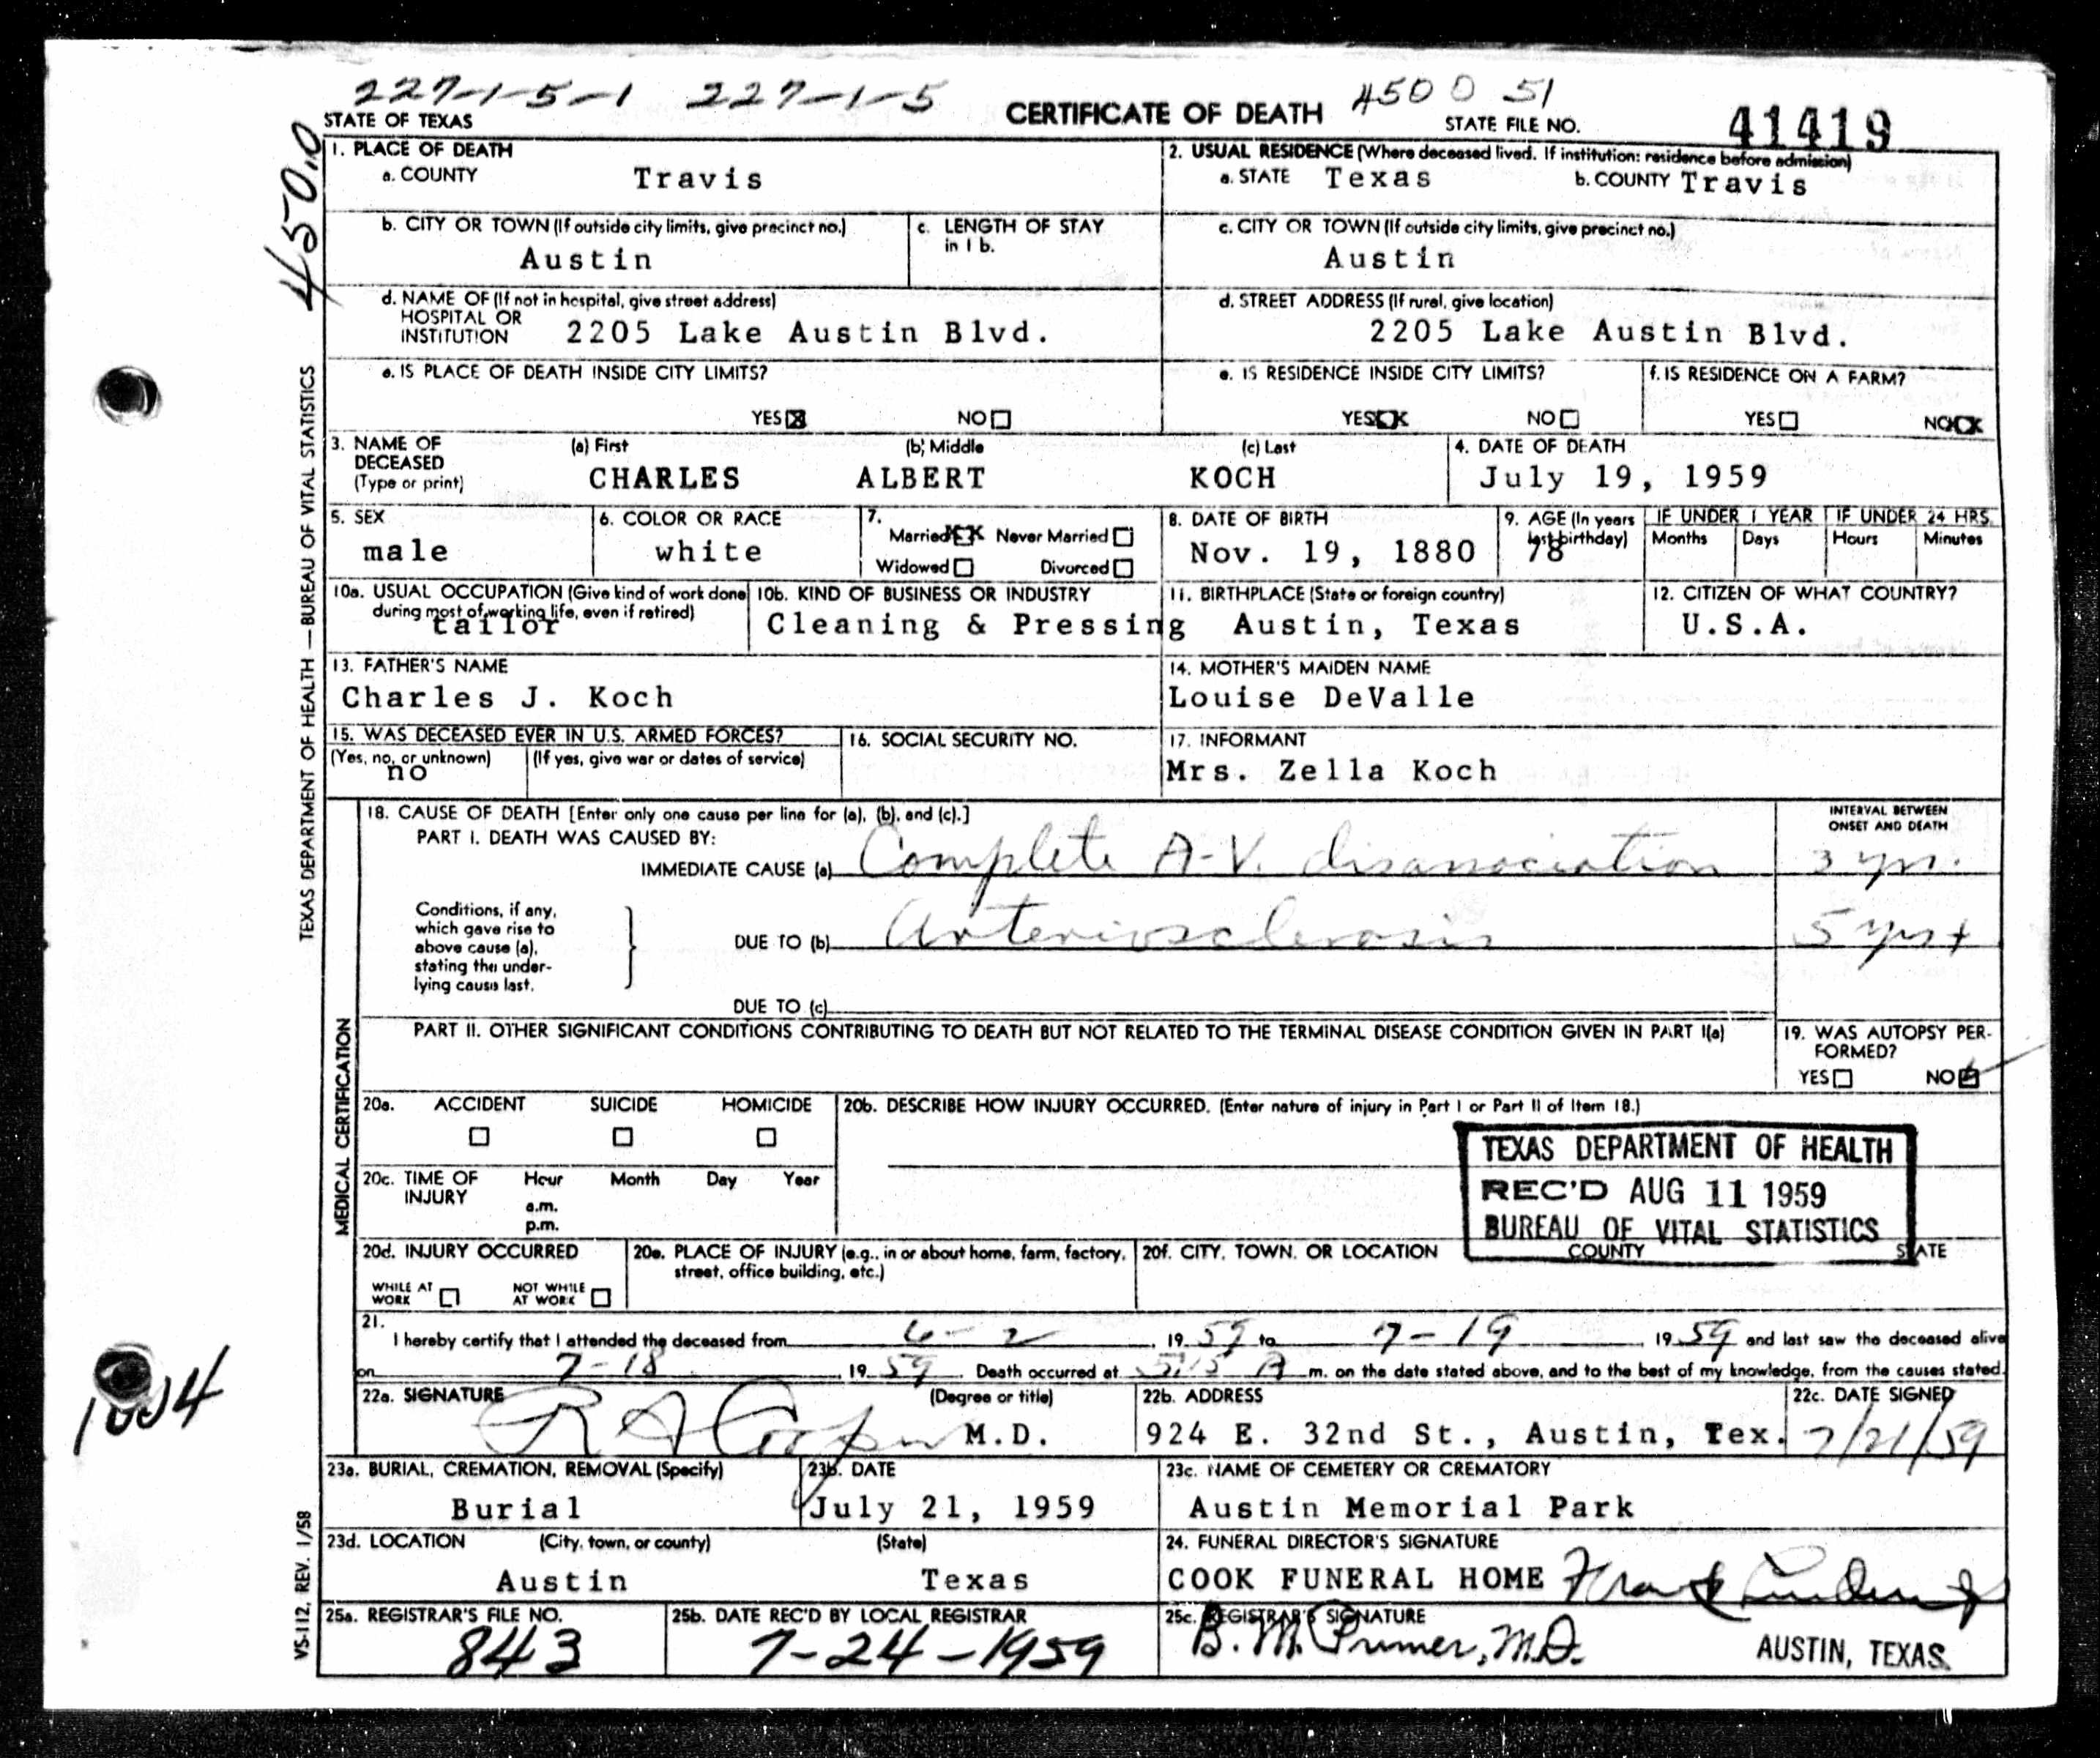 227-1-5-1 227-1-5 4500 51
STATE OF TEXAS CERTIFICATE OF DEATH STATE FILE NO. 41419
450.0
1. PLACE OF DEATH
a. COUNTY Travis
2. USUAL RESIDENCE (Where deceased lived. If institution: residence before admission)
a. STATE Texas b. COUNTY Travis
b. CITY OR TOWN (If outside city limits, give precinct no.)
Austin
c. LENGTH OF STAY
in 1 b.
c. CITY OR TOWN (If outside city limits, give precinct no.)
Austin
d. NAME OF (If not in hospital, give street address)
HOSPITAL OR
INSTITUTION 2205 Lake Austin Blvd.
d. STREET ADDRESS (If rural, give location)
2205 Lake Austin Blvd.
e. IS PLACE OF DEATH INSIDE CITY LIMITS?
YES X NO
e. IS RESIDENCE INSIDE CITY LIMITS?
YES XX NO
f. IS RESIDENCE ON A FARM?
YES NO XX
3. NAME OF
DECEASED
(Type or print)
(a) First (b) Middle (c) Last
CHARLES ALBERT KOCH
4. DATE OF DEATH
July 19, 1959
5. SEX
male
6. COLOR OR RACE
white
7.
Married XX Never Married
Widowed Divorced
8. DATE OF BIRTH
Nov. 19, 1880
9. AGE (In years
last birthday)
78
IF UNDER 1 YEAR IF UNDER 24 HRS.
Months Days Hours Minutes
10a. USUAL OCCUPATION (Give kind of work done
during most of working life, even if retired)
tailor
10b. KIND OF BUSINESS OR INDUSTRY
Cleaning & Pressing
11. BIRTHPLACE (State or foreign country)
Austin, Texas
12. CITIZEN OF WHAT COUNTRY?
U.S.A.
13. FATHER'S NAME
Charles J. Koch
14. MOTHER'S MAIDEN NAME
Louise DeValle
15. WAS DECEASED EVER IN U.S. ARMED FORCES?
(Yes, no, or unknown) (If yes, give war or dates of service)
no
16. SOCIAL SECURITY NO.
17. INFORMANT
Mrs. Zella Koch
TEXAS DEPARTMENT OF HEALTH — BUREAU OF VITAL STATISTICS
MEDICAL CERTIFICATION
18. CAUSE OF DEATH [Enter only one cause per line for (a), (b), and (c).]
INTERVAL BETWEEN
ONSET AND DEATH
PART I. DEATH WAS CAUSED BY:
IMMEDIATE CAUSE (a) Complete A-V. disassociation 3 yrs.
Conditions, if any,
which gave rise to
above cause (a),
stating the under-
lying cause last.
DUE TO (b) Arteriosclerosis 5 yrs +
DUE TO (c)
PART II. OTHER SIGNIFICANT CONDITIONS CONTRIBUTING TO DEATH BUT NOT RELATED TO THE TERMINAL DISEASE CONDITION GIVEN IN PART I(a)
19. WAS AUTOPSY PER-
FORMED?
YES NO
20a. ACCIDENT SUICIDE HOMICIDE
20b. DESCRIBE HOW INJURY OCCURRED. (Enter nature of injury in Part I or Part II of Item 18.)
TEXAS DEPARTMENT OF HEALTH
REC'D AUG 11 1959
BUREAU OF VITAL STATISTICS
20c. TIME OF
INJURY
Hour Month Day Year
a.m.
p.m.
20d. INJURY OCCURRED
WHILE AT
WORK
NOT WHILE
AT WORK
20e. PLACE OF INJURY (e.g., in or about home, farm, factory,
street, office building, etc.)
20f. CITY, TOWN, OR LOCATION COUNTY STATE
21.
I hereby certify that I attended the deceased from 6-2, 1959 to 7-19, 1959 and last saw the deceased alive
on 7-18, 1959. Death occurred at 5:15 A m. on the date stated above, and to the best of my knowledge, from the causes stated.
1004
22a. SIGNATURE (Degree or title)
R A Cooper M.D.
22b. ADDRESS
924 E. 32nd St., Austin, Tex.
22c. DATE SIGNED
7/21/59
23a. BURIAL, CREMATION, REMOVAL (Specify)
Burial
23b. DATE
July 21, 1959
23c. NAME OF CEMETERY OR CREMATORY
Austin Memorial Park
23d. LOCATION (City, town, or county) (State)
Austin Texas
24. FUNERAL DIRECTOR'S SIGNATURE
COOK FUNERAL HOME Frank
25a. REGISTRAR'S FILE NO.
843
25b. DATE REC'D BY LOCAL REGISTRAR
7-24-1959
25c. REGISTRAR'S SIGNATURE
B. M. Primer, M.D. AUSTIN, TEXAS
VS-112, REV. 1/58